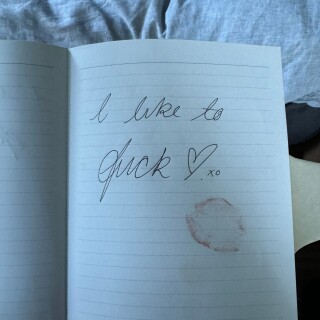 I like to
fuck ♡.xo